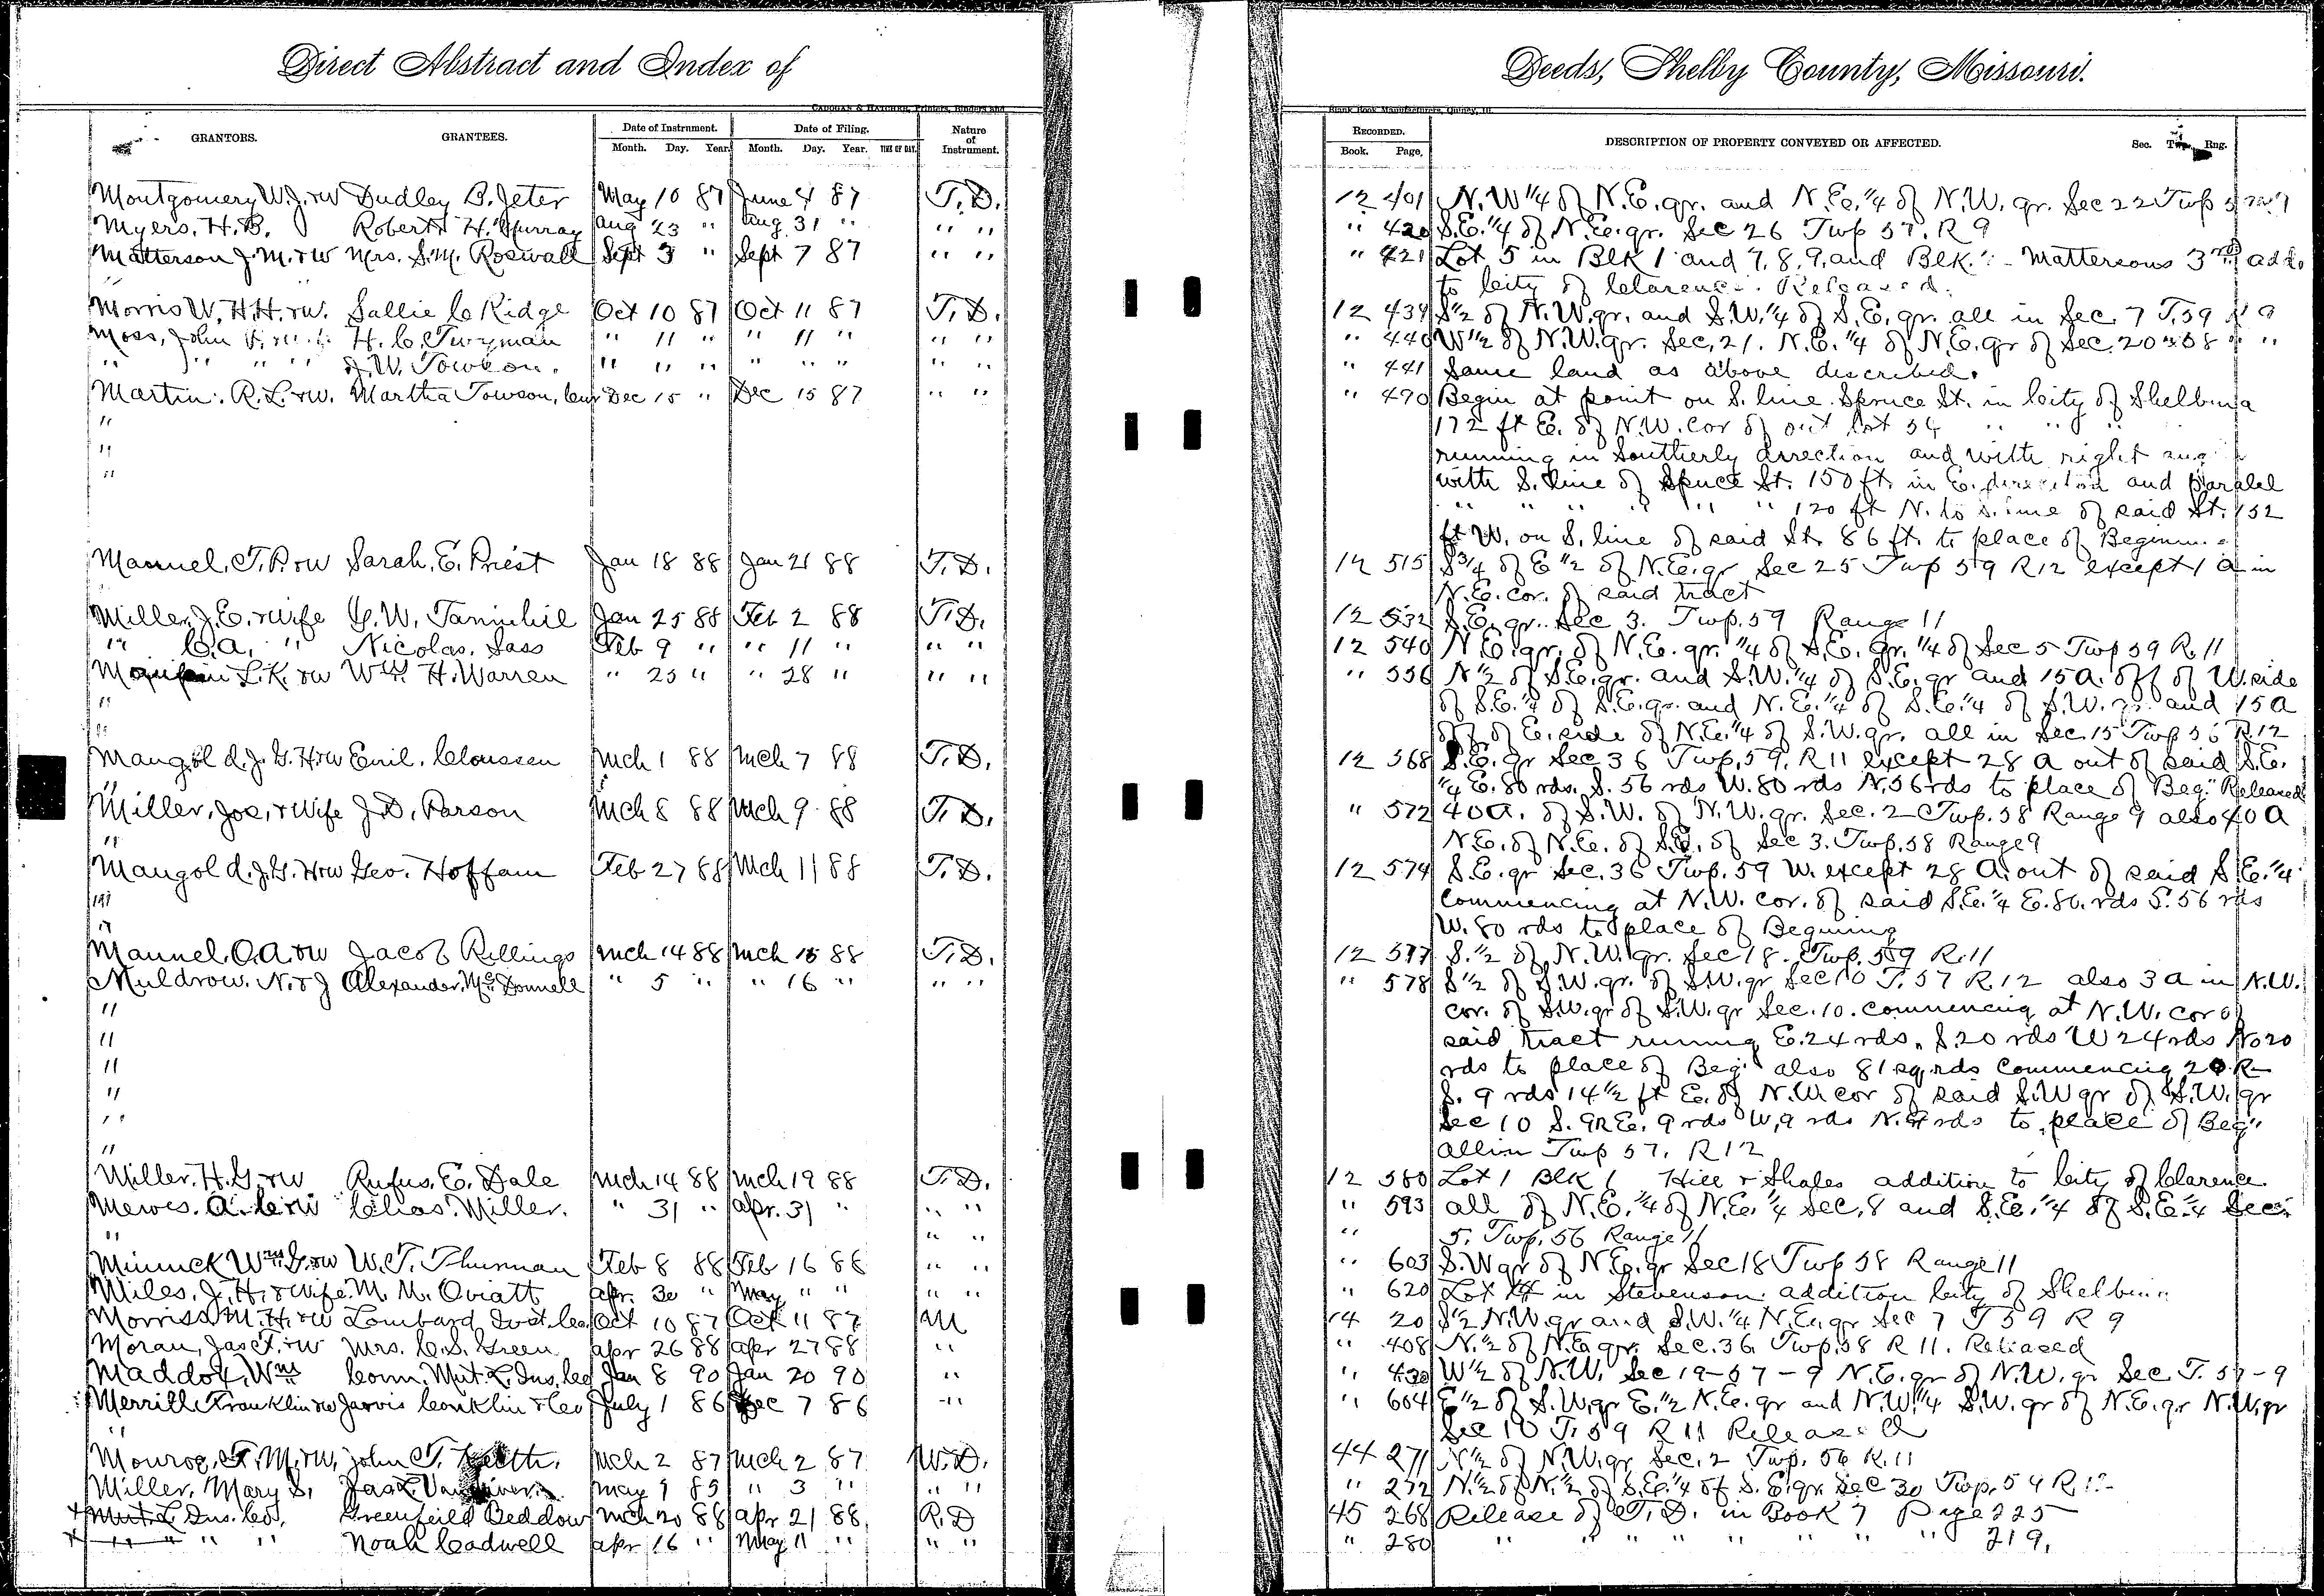 Direct Abstract and Index of Deeds, Shelby County, Missouri.
CADOGAN & HATCHER, Printers, Binders and Blank Book Manufacturers, Quincy, Ill.
GRANTORS. GRANTEES. Date of Instrument. Date of Filing. Nature of Instrument. RECORDED. DESCRIPTION OF PROPERTY CONVEYED OR AFFECTED. Sec. Twp. Rng.
Month. Day. Year. Month. Day. Year. TIME OF DAY. Book. Page.
Montgomery W.J. & W Dudley B. Jeter May 10 87 June 4 87 T.D. 12 401 N.W 1/4 of N.E. qr. and N.E. 1/4 of N.W. qr. Sec 22 Twp
Myers, H.B. Robert H. Murray Aug 23 " Aug 31 " " " " 420 S.E. 1/4 of N.E. qr. Sec 26 Twp 57. R 9
Matterson J.M. & W Mrs. S.M. Roswall Sept 3 " Sept 7 87 " " " 421 Lot 5 in Blk 1 and 7, 8, 9, and Blk. Mattersons 3rd add.
" to City of Clarence. Released.
Morris W.H.H. & W. Sallie C Ridge Oct 10 87 Oct 11 87 T.D. 12 439 S 1/2 of N.W. qr. and S.W. 1/4 of S.E. qr. all in Sec. 7 T. 59 R 9
Moss, John H. C. Twyman " 11 " " 11 " " " " 440 W 1/2 of N.W. qr. Sec. 21. N.E. 1/4 of N.E. qr of Sec. 20 " 58 " "
" " " " J.W. Towson. " 11 " " " " " " " 441 Same land as above described.
Martin. R.L. & W. Martha Towson, Cur Dec 15 " Dec 15 87 " " " 490 Begin at point on S. line Spruce St. in City of Shelbina
" 172 ft E. of N.W. Cor of out Lot 54
" running in Southerly direction and with right ang
" with S. line of Spruce St. 150 ft. in E. direction and Paralel
" " " " " " 120 ft N. to S. line of said St. 152
ft W. on S. line of said St. 86 ft. to place of Beginn
Mannel, T.P. & W Sarah, E. Priest Jan 18 88 Jan 21 88 T.D. 12 515 S 3/4 of E 1/2 of N.E. qr Sec 25 Twp 59 R 12 except 1 a in
N.E. cor. of said tract
Miller, J.E. & Wife G.W. Tannihil Jan 25 88 Feb 2 88 T.D. 12 532 S.E. qr. Sec 3. Twp. 59 Range 11
" C.A. " Nicolas. Sass Feb 9 " " 11 " " " 12 540 N.E. qr. of N.E. qr. 1/4 of S.E. Qr. 1/4 of Sec 5 Twp 59 R. 11
L.K. & W Wm. H. Warren " 25 " " 28 " " " " 556 N 1/2 of S.E. qr. and S.W. 1/4 of S.E. qr and 15 A. off of W. side
" of S.E. 1/4 of S.E. qr. and N.E. 1/4 of S.E. 1/4 of S.W. qr. and 15 A
" off of E. side of N.E. 1/4 of S.W. qr. all in Sec. 15 Twp 56 R. 12
Mangold. J.G.H & W Emil. Cloussen Mch 1 88 Mch 7 88 T.D. 12 568 S.E. qr Sec 36 Twp. 59. R 11 except 28 A out of said S.E.
" 1/4 E. 80 rds. S. 56 rds W. 80 rds N. 56 rds to place of Beg." Released
Miller, Jos, & Wife J.D. Parson Mch 8 88 Mch 9 88 T.D. " 572 40 A. of S.W. of N.W. qr. Sec. 2 Twp. 58 Range 9 also 40 A
" N.E. of N.E. of S.E. of Sec 3. Twp. 58 Range 9
Mangold. J.G.H & W Geo. Hoffam Feb 27 88 Mch 11 88 T.D. 12 574 S.E. qr Sec. 36 Twp. 59 W. except 28 A. out of said S.E. 1/4
" Commencing at N.W. cor. of said S.E. 1/4 E. 80. rds S. 56 rds
" W. 80 rds to place of Begining
Mannel, O.A. & W Jacob Rillings Mch 14 88 Mch 15 88 T.D. 12 577 S. 1/2 of N.W. qr. Sec 18. Twp. 59 R. 11
Muldrow. N. & J Alexander, McDonnell " 5 " " 16 " " " " 578 S 1/2 of S.W. qr. of S.W. qr Sec 10 T. 57 R. 12 also 3 A in N.W.
" cor. of S.W. qr of S.W. qr Sec. 10. commencing at N.W. cor of
" said tract runnig E. 24 rds. S. 20 rds W 24 rds No 20
" rds to place of Beg. also 81 sq. rds Commencing 20 R
" S. 9 rds 14 1/2 ft E. of N.W. cor of said S.W qr of S.W. qr
" Sec 10 S. 9 R E. 9 rds W, 9 rds N. 9 rds to place of Beg"
" all in Twp 57. R 12
Miller. H.G. & W Rufus. E. Dale Mch 14 88 Mch 19 88 T.D. 12 580 Lot 1 Blk 1 Hill & Shales addition to City of Clarence
Mewes. A. C & W Elias. Miller. " 31 " Apr. 31 " " " " 593 all of N.E. 1/4 of N.E. 1/4 Sec. 8 and S.E. 1/4 of S.E. 1/4 Sec.
" " " " 5. Twp. 56 Range 11
Minnick Wm. G. & W W.T. Thurman Feb 8 88 Feb 16 88 " " " 603 S.W qr of N.E. qr Sec 18 Twp 58 Range 11
Miles, J.H. & Wife M.M. Oviatt Apr. 30 " May " " " " " 620 Lot in Stevenson addition City of Shelbina
Morriss M.H. & W Lombard Invt. Co. Oct 10 87 Oct 11 87 M 14 20 S 1/2 N.W. qr and S.W. 1/4 N.E. qr Sec 7 T 59 R 9
Moran, Jas. T. & W Mrs. C.S. Green Apr 26 88 Apr 27 88 " " 408 N. 1/2 of N.E. qr. Sec. 36 Twp. 58 R 11. Released
Maddox, Wm Conn. Mut. L. Ins. Co Jan 8 90 Jan 20 90 " " 430 W 1/2 of N.W. Sec 19-57-9 N.E. qr of N.W. qr Sec. T. 57-9
Merrill Franklin & W Jarvis Conklin & Co July 1 86 Dec 7 86 " " 604 E 1/2 of S.W. qr E. 1/2 N.E. qr and N.W. 1/4 S.W. qr of N.E. qr N.W. qr
" Sec 10 T. 59 R 11 Released
Monroe, T.M. & W, John T. Keith. Mch 2 87 Mch 2 87 W.D. 44 271 N 1/2 of N.W. qr Sec. 2 Twp. 56 R. 11
Miller, Mary S. Jas L. Vandiver May 9 85 " 3 " " " " 272 N. 1/2 of N. 1/2 of S.E. 1/4 of S.E. qr. Sec 30 Twp. 54 R.
Mut. L. Ins. Co. Greenfeild Beddow Mch 20 88 Apr 21 88 R.D 45 268 Release of T.D. in Book 7 Page 225
" " " Noah Cadwell Apr 16 " May 11 " " " " 280 " " " " " " " 219.